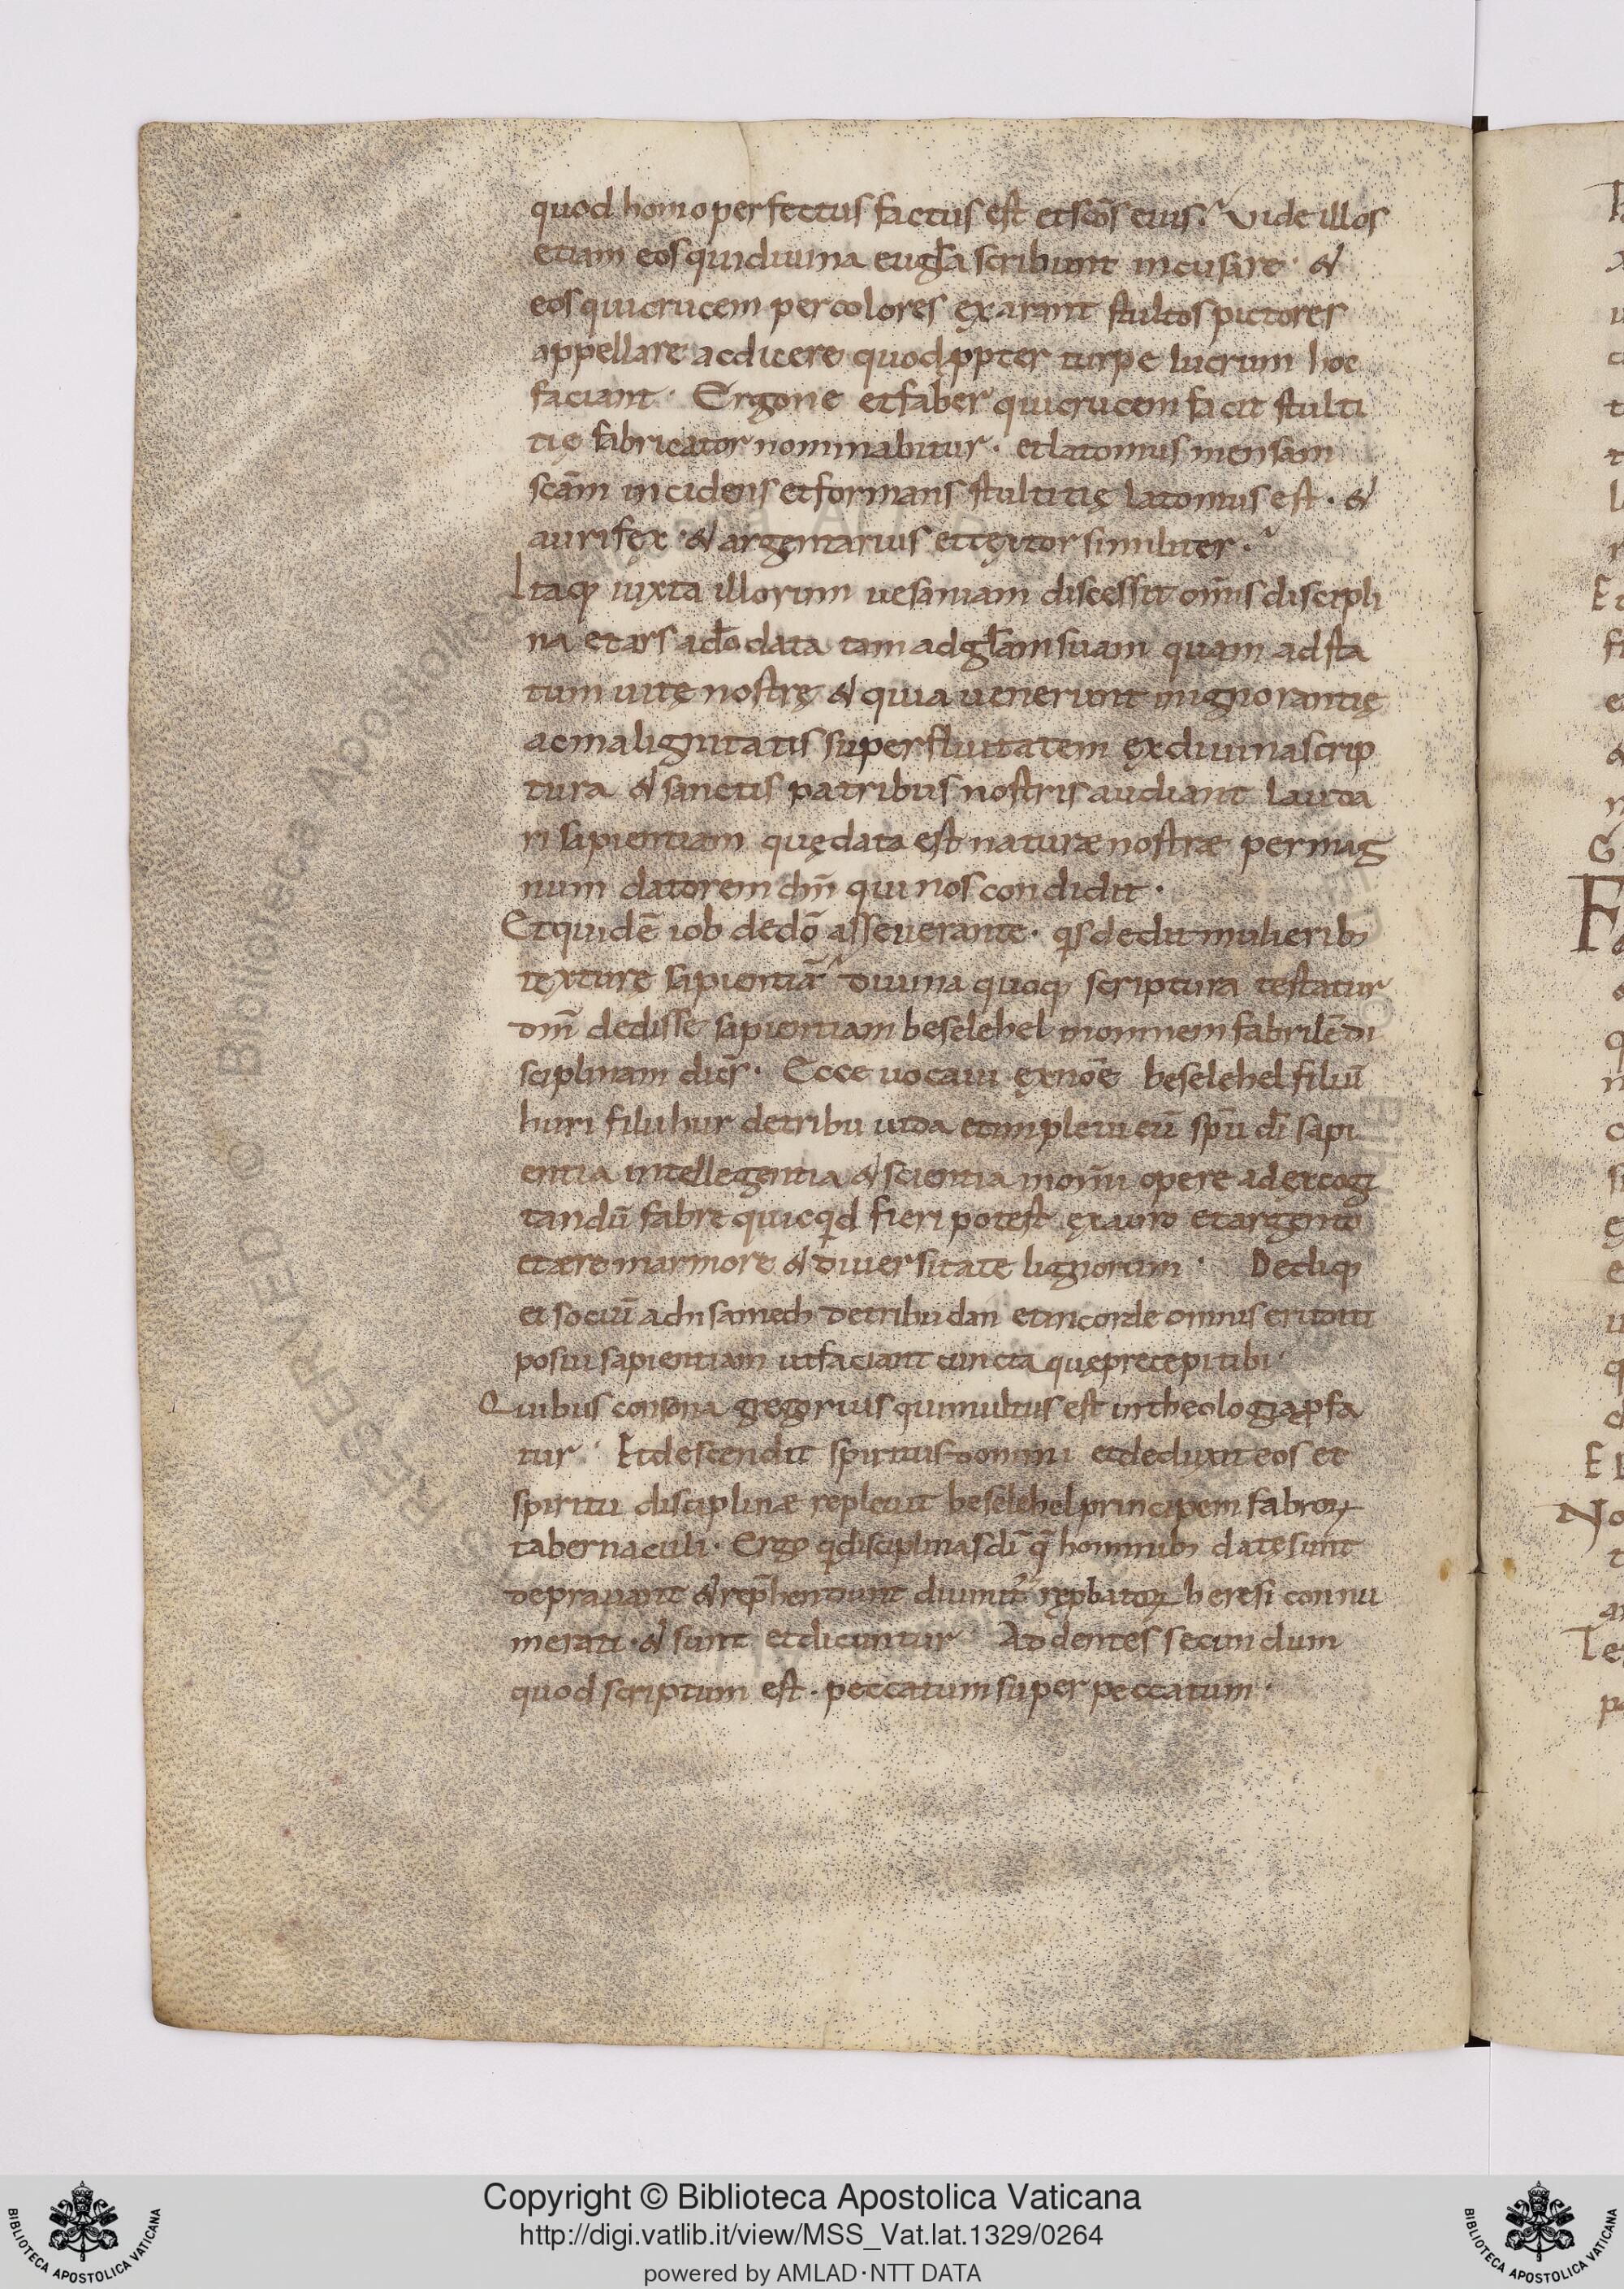 quod homo perfectus factus est et scōs eius? Vide illos
etiam eos qui diuina eugl̄a scribunt incusare · &
eos qui crucem per colores exarant stultos pictores
appellare ac dicere quod ꝓpter turpe lucrum hoc
faciant · Ergone et faber qui crucem facit stulti
tię fabricator nominabitur · et latomus mensam
scām incidens et formans stultitię latomus est · &
aurifex · & argentarius et textor similiter ·
Itaq; iuxta illorum uesaniam discessit om̄is discipli
na et ars a dō data tam ad gl̄am suam quam ad sta
tum uitę nostrę & quia uenerunt in ignorantię
ac malignitatis superfluitatem ex diuina scrip
tura & sanctis patribus nostris audiant lauda
ri sapientiam quę data est naturæ nostræ per mag
num datorem dm̄ qui nos condidit ·
Et quidē iob de dō asseuerante · qs dedit mulierib;
texturę sapientiā diuina quoq; scriptura testatur
dm̄ dedisse sapientiam beselehel in omnem fabrilē di
sciplinam dicēs · Ecce uocaui ex nōe beselehel filiū
huri filii hur de tribu iuda et impleui eū spū dī sapi
entia intellegentia & scientia in om̄i opere ad excogi
tandū fabre quicqd fieri potest ex auro et argento
et ære marmore & diuersitate lignorum · Dediq;
et sociū achisamech de tribu dan et in corde omnis eruditi
posui sapientiam ut faciant cuncta quę precepi tibi ·
Quibus consona gregorius qui multus est in theologia ꝓfa
tur · Et descendit spiritus domini et deduxit eos et
spiritu disciplinæ repleuit beselehel principem fabroꝝ
tabernaculi · Ergo q disciplinas dī q̄ hominib; datę sunt
deprauant & rep̄hendunt diuinit̄ reꝓbatoꝝ heresi connu
merati · & sunt et dicuntur Addentes secundum
quod scriptum est · peccatum super peccatum ·
Copyright © Biblioteca Apostolica Vaticana
http://digi.vatlib.it/view/MSS_Vat.lat.1329/0264
powered by AMLAD·NTT DATA
BIBLIOTECA APOSTOLICA VATICANA
BIBLIOTECA APOSTOLICA VATICANA